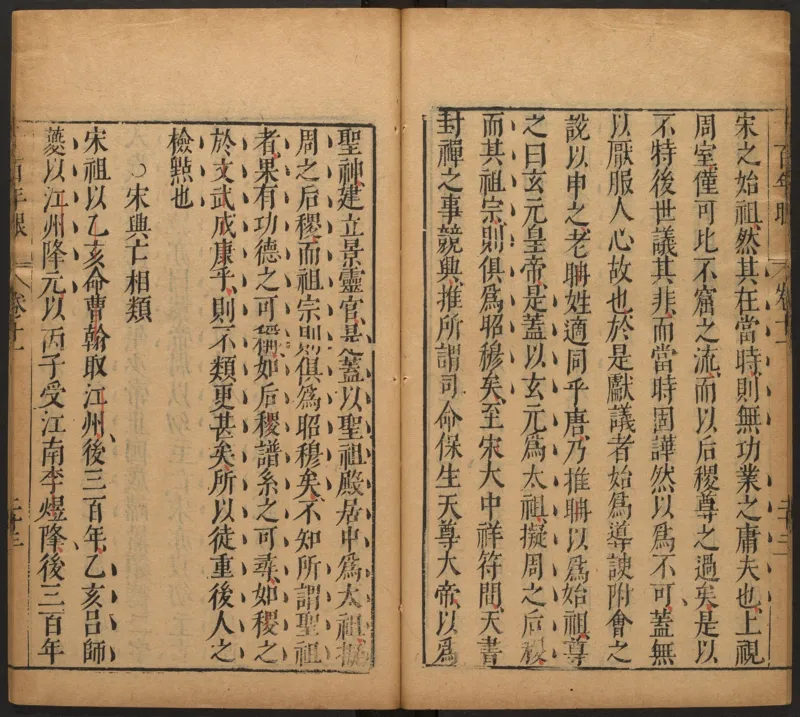 百年眼 卷十一
宋之始祖然其在當時則無功業之庸夫也上視
周室僅可比不窟之流而以后稷尊之過矣是以
不特後世議其非而當時固譁然以爲不可蓋無
以厭服人心故也於是獻議者始爲導諛附會之
說以申之老聃姓適同乎唐乃推聃以爲始祖尊
之曰玄元皇帝是蓋以玄元爲太祖擬周之后稷
而其祖宗則俱爲昭穆矣至宋大中祥符間天書
封禪之事競興推所謂司命保生天尊大帝以爲
聖神建立景靈宮是蓋以聖祖殿居中爲太祖擬
周之后稷而祖宗則俱爲昭穆矣不知所謂聖祖
者果有功德之可稱如后稷譜系之可尋如稷之
於文武成康乎則不類更甚矣所以徒重後人之
檢點也
○宋興亡相類
宋祖以乙亥命曹翰取江州後三百年乙亥呂師
夔以江州降元以丙子受江南李煜降後三百年
百年眼 卷十一 二十三